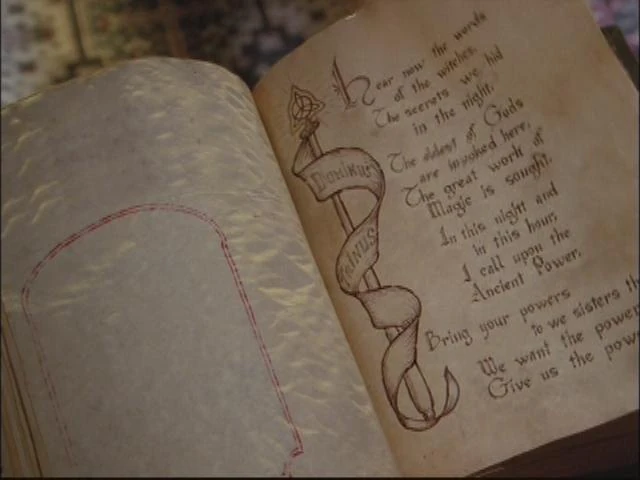 Hear now the words
of the witches,
The secrets we hid
in the night.
The oldest of Gods
are invoked here,
The great work of
Magic is sought.
In this night and
in this hour,
I call upon the
Ancient Power.
Bring your powers
to we sisters
We want the power
Give us the
DOMINUS
TRINUS